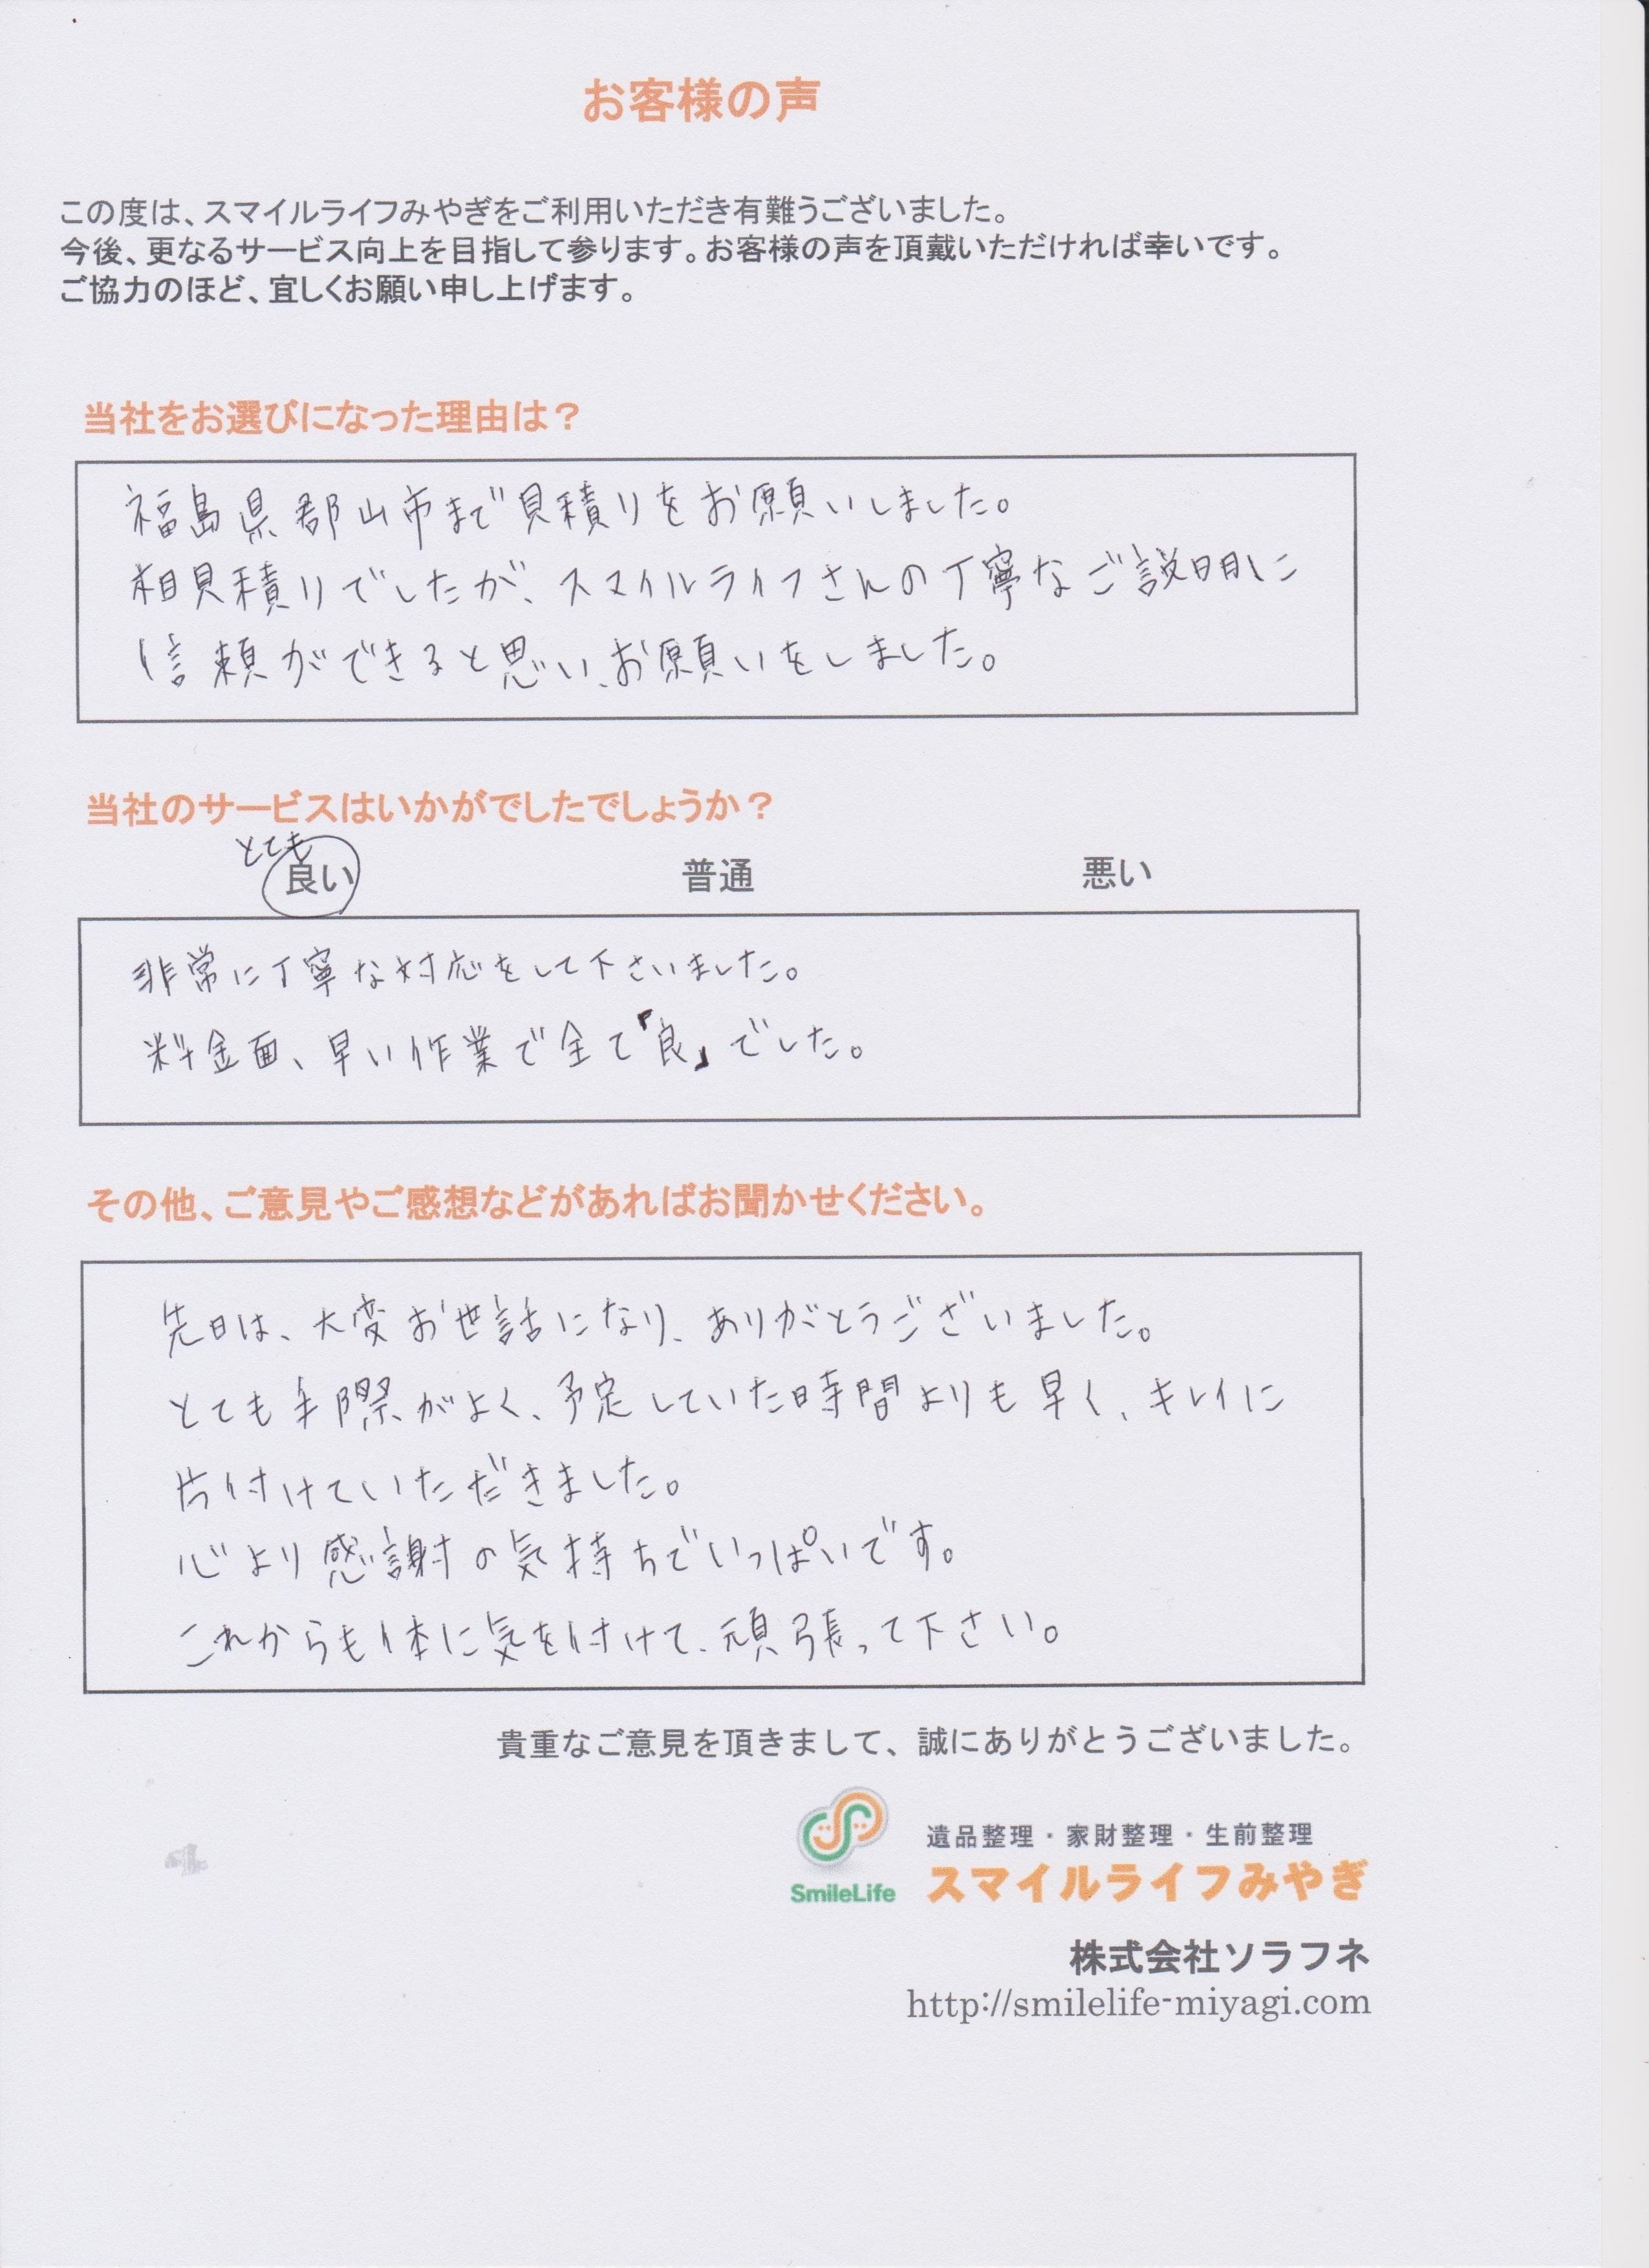 お客様の声
この度は、スマイルライフみやぎをご利用いただき有難うございました。
今後、更なるサービス向上を目指して参ります。お客様の声を頂戴いただければ幸いです。
ご協力のほど、宜しくお願い申し上げます。
当社をお選びになった理由は？
福島県郡山市まで見積りをお願いしました。
相見積りでしたが、スマイルライフさんの丁寧なご説明に
信頼ができると思い、お願いをしました。
当社のサービスはいかがでしたでしょうか？
とても
良い 普通 悪い
非常に丁寧な対応をして下さいました。
料金面、早い作業で全て「良」でした。
その他、ご意見やご感想などがあればお聞かせください。
先日は、大変お世話になり、ありがとうございました。
とても手際がよく、予定していた時間よりも早く、キレイに
片付けていただきました。
心より感謝の気持ちでいっぱいです。
これからも体に気を付けて、頑張って下さい。
貴重なご意見を頂きまして、誠にありがとうございました。
遺品整理・家財整理・生前整理
SmileLife スマイルライフみやぎ
株式会社ソラフネ
http://smilelife-miyagi.com